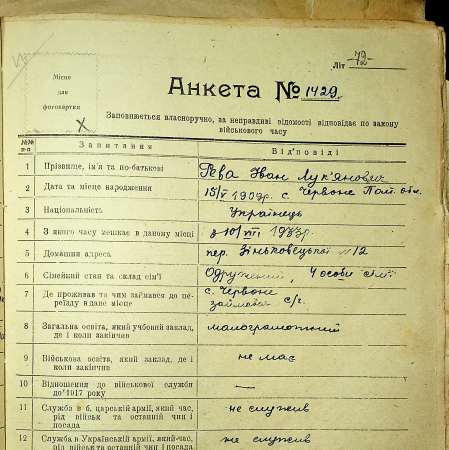 Літ -72-
Місце
для
фотокартки
Анкета № 1429
Заповнюється власноручно, за неправдиві відомості відповідає по закону
військового часу
№№ п-п Запитання Відповіді
1 Прізвище, ім'я та по-батькові Рева Іван Лук'янович
2 Дата та місце народження 15/V 1909р. с. Червоне Пол. обл.
3 Національність Українець
4 З якого часу мешкає в даному місці з 10/VII 1933р.
5 Домашня адреса пер. Зіньковецької №12
6 Сімейний стан та склад сім'ї Одружений, 4 особи сім'ї
7 Де проживав та чим займався до пе- с. Червоне
реїзду в дане місце займався с/г.
8 Загальна освіта, який учбовий заклад, малограмотний
де і коли закінчив
9 Військова освіта, який заклад, де і не має
коли закінчив
10 Відношення до військової служби —
до 1917 року
11 Служба в б. царській армії, який час, не служив
рід військ та останній чин і
посада
12 Служба в Українській армії, який-час, не служив
рід військ та останній чин і посада